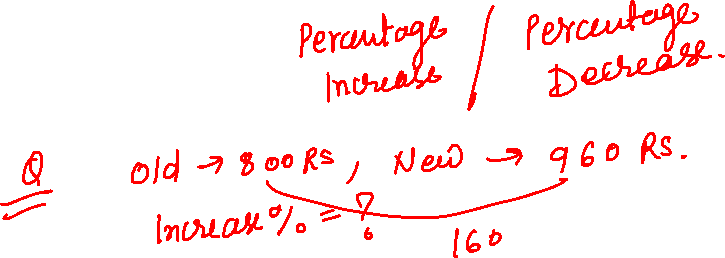 Percentage Increase / Percentage Decrease.
Q Old → 800 RS, New → 960 RS.
Increase % = ?
160